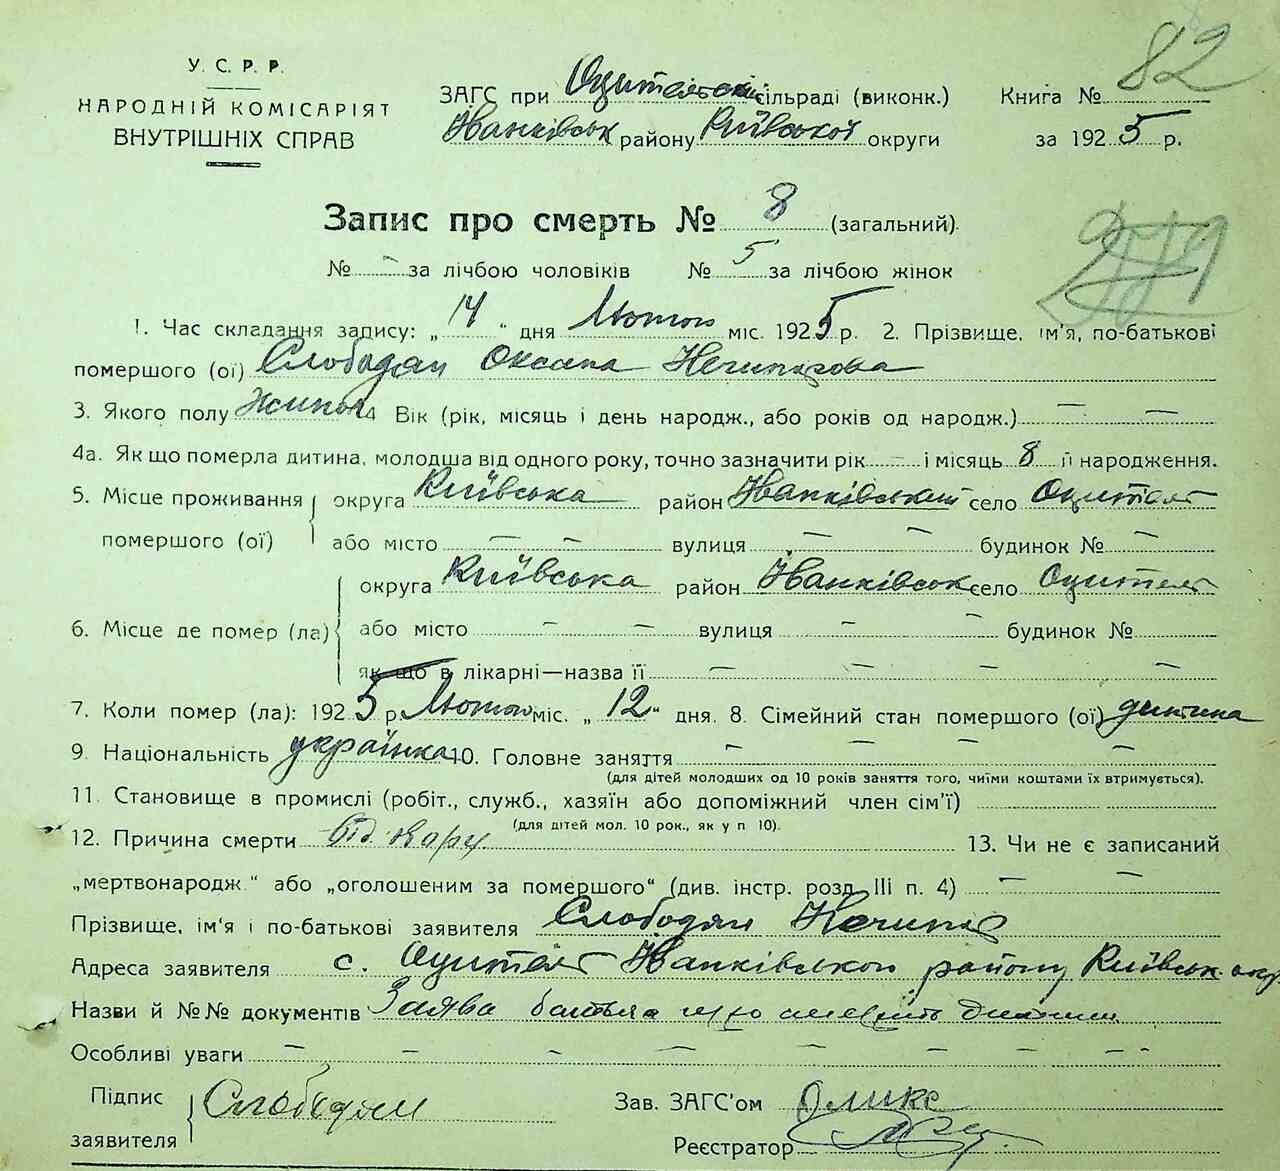 82
У. С. Р. Р.
НАРОДНІЙ КОМІСАРІЯТ
ВНУТРІШНІХ СПРАВ
ЗАГС при Оцительській сільраді (виконк.) Книга №
Іванківськ району Київської округи за 1925 р.
Запис про смерть № 8 (загальний).
№ - за лічбою чоловіків № 5 за лічбою жінок
1. Час складання запису: „14" дня Лютого міс. 1925 р. 2. Прізвище, ім'я, по-батькові
помершого (ої) Слободян Оксана Нечипорова
3. Якого полу Жіноч 4 Вік (рік, місяць і день народж., або років од народж.) — —
4а. Якщо померла дитина, молодша від одного року, точно зазначити рік - і місяць 8 її народження.
5. Місце проживання округа Київська район Іванківський село Оцитель
помершого (ої) або місто — — вулиця — — будинок № —
округа Київська район Іванківськ село Оцитель
6. Місце де помер (ла) або місто — — вулиця — — будинок №
як що в лікарні—назва її — — — —
7. Коли помер (ла): 1925 р. Лютого міс. „12" дня. 8. Сімейний стан помершого (ої) дитина
9. Національність українка 10. Головне заняття — — — —
(для дітей молодших од 10 років заняття того, чиїми коштами їх втримується).
11. Становище в промислі (робіт., служб., хазяїн або допоміжний член сім'ї)
(для дітей мол. 10 рок., як у п 10).
12. Причина смерти Від кару 13. Чи не є записаний
„мертвонародж." або „оголошеним за помершого" (див. інстр. розд. III п. 4) — —
Прізвище, ім'я і по-батькові заявителя Слободян Нечипір
Адреса заявителя с. Оцитель Іванківського району Київськ. окр.
Назви й №№ документів Заява батька про смерть дитини
Особливі уваги — — — — — — — —
Підпис Слободян Зав. ЗАГС'ом
заявителя Реєстратор